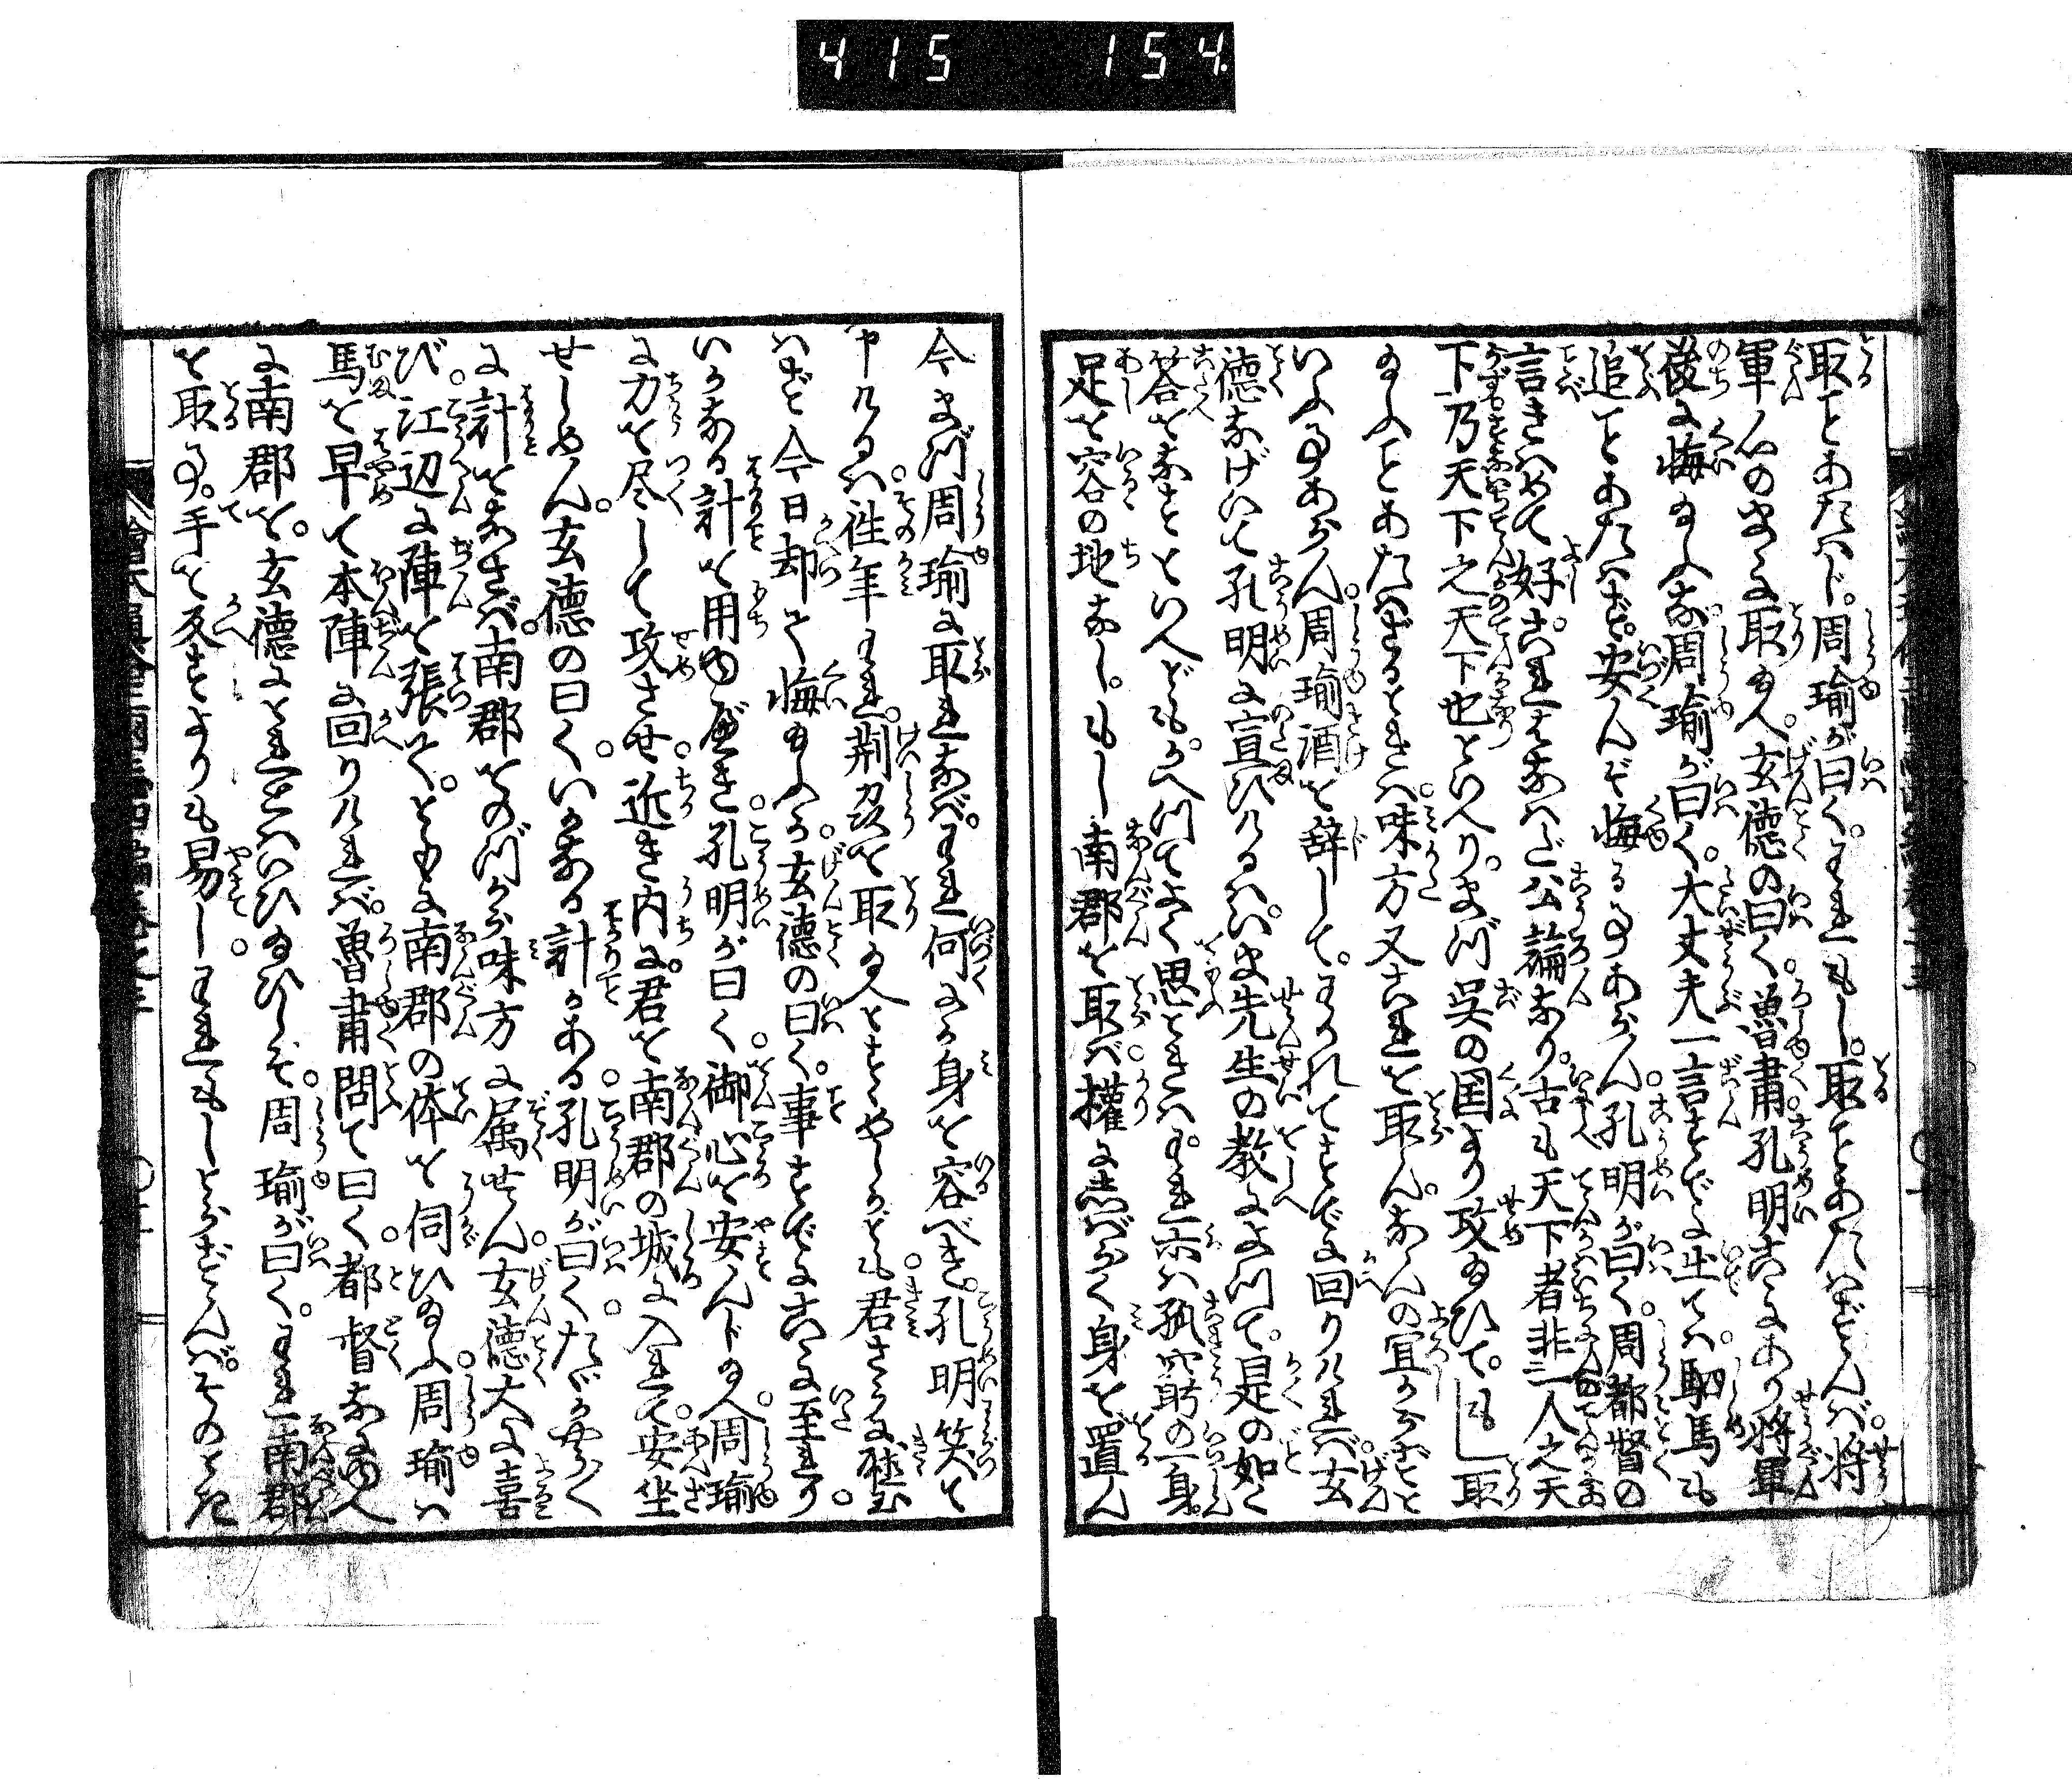 415 154.
取ことあたハじ。周瑜が曰く。われもし。取ことあたハずんバ。将
軍心のまゝに取給へ。玄徳の曰く。魯粛。孔明こゝにあり。将軍
後に悔給ふな。周瑜が曰く。大丈夫一言すでに出てハ。駟馬も
追ことあたハず。安んぞ悔る事あらん。孔明が曰く。周都督の
言きハめて好。これまことに公論なり。古も天下者非一人之天
下乃天下之天下也といへり。まづ呉の国より攻給ひて。もし取
給ふことあたハざるときハ。味方又これを取ん。なんの宜からざること
いふ事あらん。周瑜酒を辞して。わかれてすでに回りけれバ。玄
徳なげいて孔明に宣ひけるハ。いま先生の教によつて。是の如く
答をなすといへども。かへつてよく思ときハ。われ六ハ孤窮の一身。
足を容の地なし。もし南郡を取バ。權に且く身を置ん
今まづ周瑜に取れなば。われ何に身を容べき。孔明笑て
申けるハ。往年われ。荆州を取給へとすゝめしかども。君さらに聴玉
ハず。今日却て悔給ふか。玄徳の曰く。事すでにこゝに至れり。
いかなる計を用ゆべき。孔明が曰く。御心を安んじ給へ。周瑜
に力を尽して攻させ。近き内に。君を南郡の城に入れて。安坐
せしめん。玄徳の曰く。いかなる計かある。孔明が曰く。たゞかくの
に計をなさバ。南郡をのづから味方に属せん。玄徳大に喜
び。江辺に陣を張て。ともに南郡の体を伺ひ給ふ。周瑜ハ
馬を早て本陣に回りけれバ。魯粛問て曰く。都督なにゆへ
に南郡を。玄徳にとれとハいひ給ひしぞ。周瑜が曰く。われ南郡
を取る事。手を反すよりも易し。われもしとらずんバ。そのとき